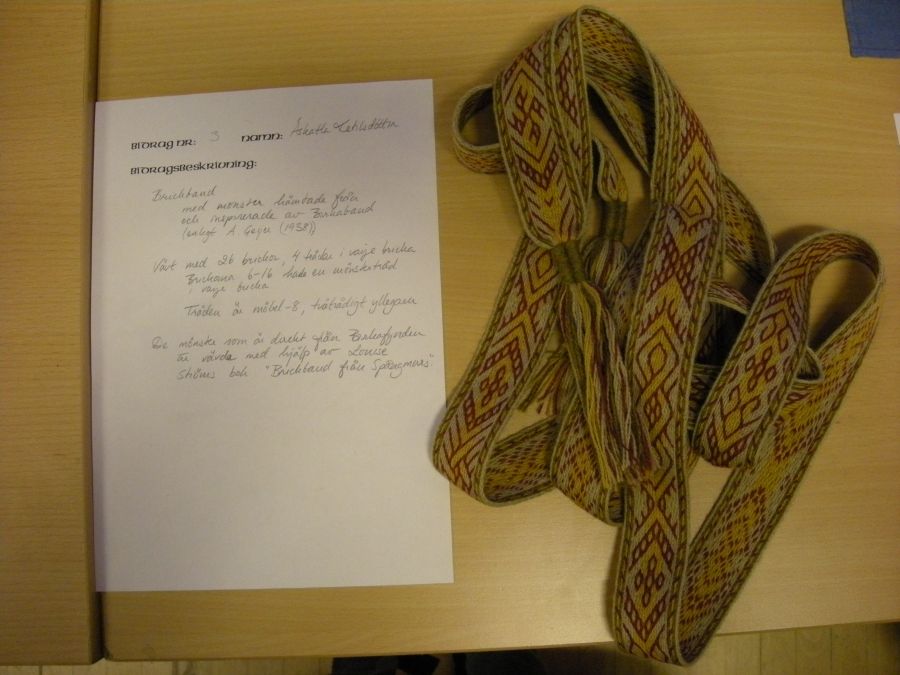 BIDRAG NR: 3 NAMN: Åskatla
BIDRAGSBESKRIVNING:
Brickband
med mönster hämtade från
och inspirerade av Birkaband
(enligt A. Geijer (1938))
Vävt med 26 brickor, 4 trådar i varje bricka
Brickorna 6-16 hade en mönstertråd
i varje bricka
Tråden är möbel-8, tvåtrådigt yllegarn
De mönster som är direkt från
är vävda med hjälp av Louise
Ströms bok "Brickband från Spångmurs".